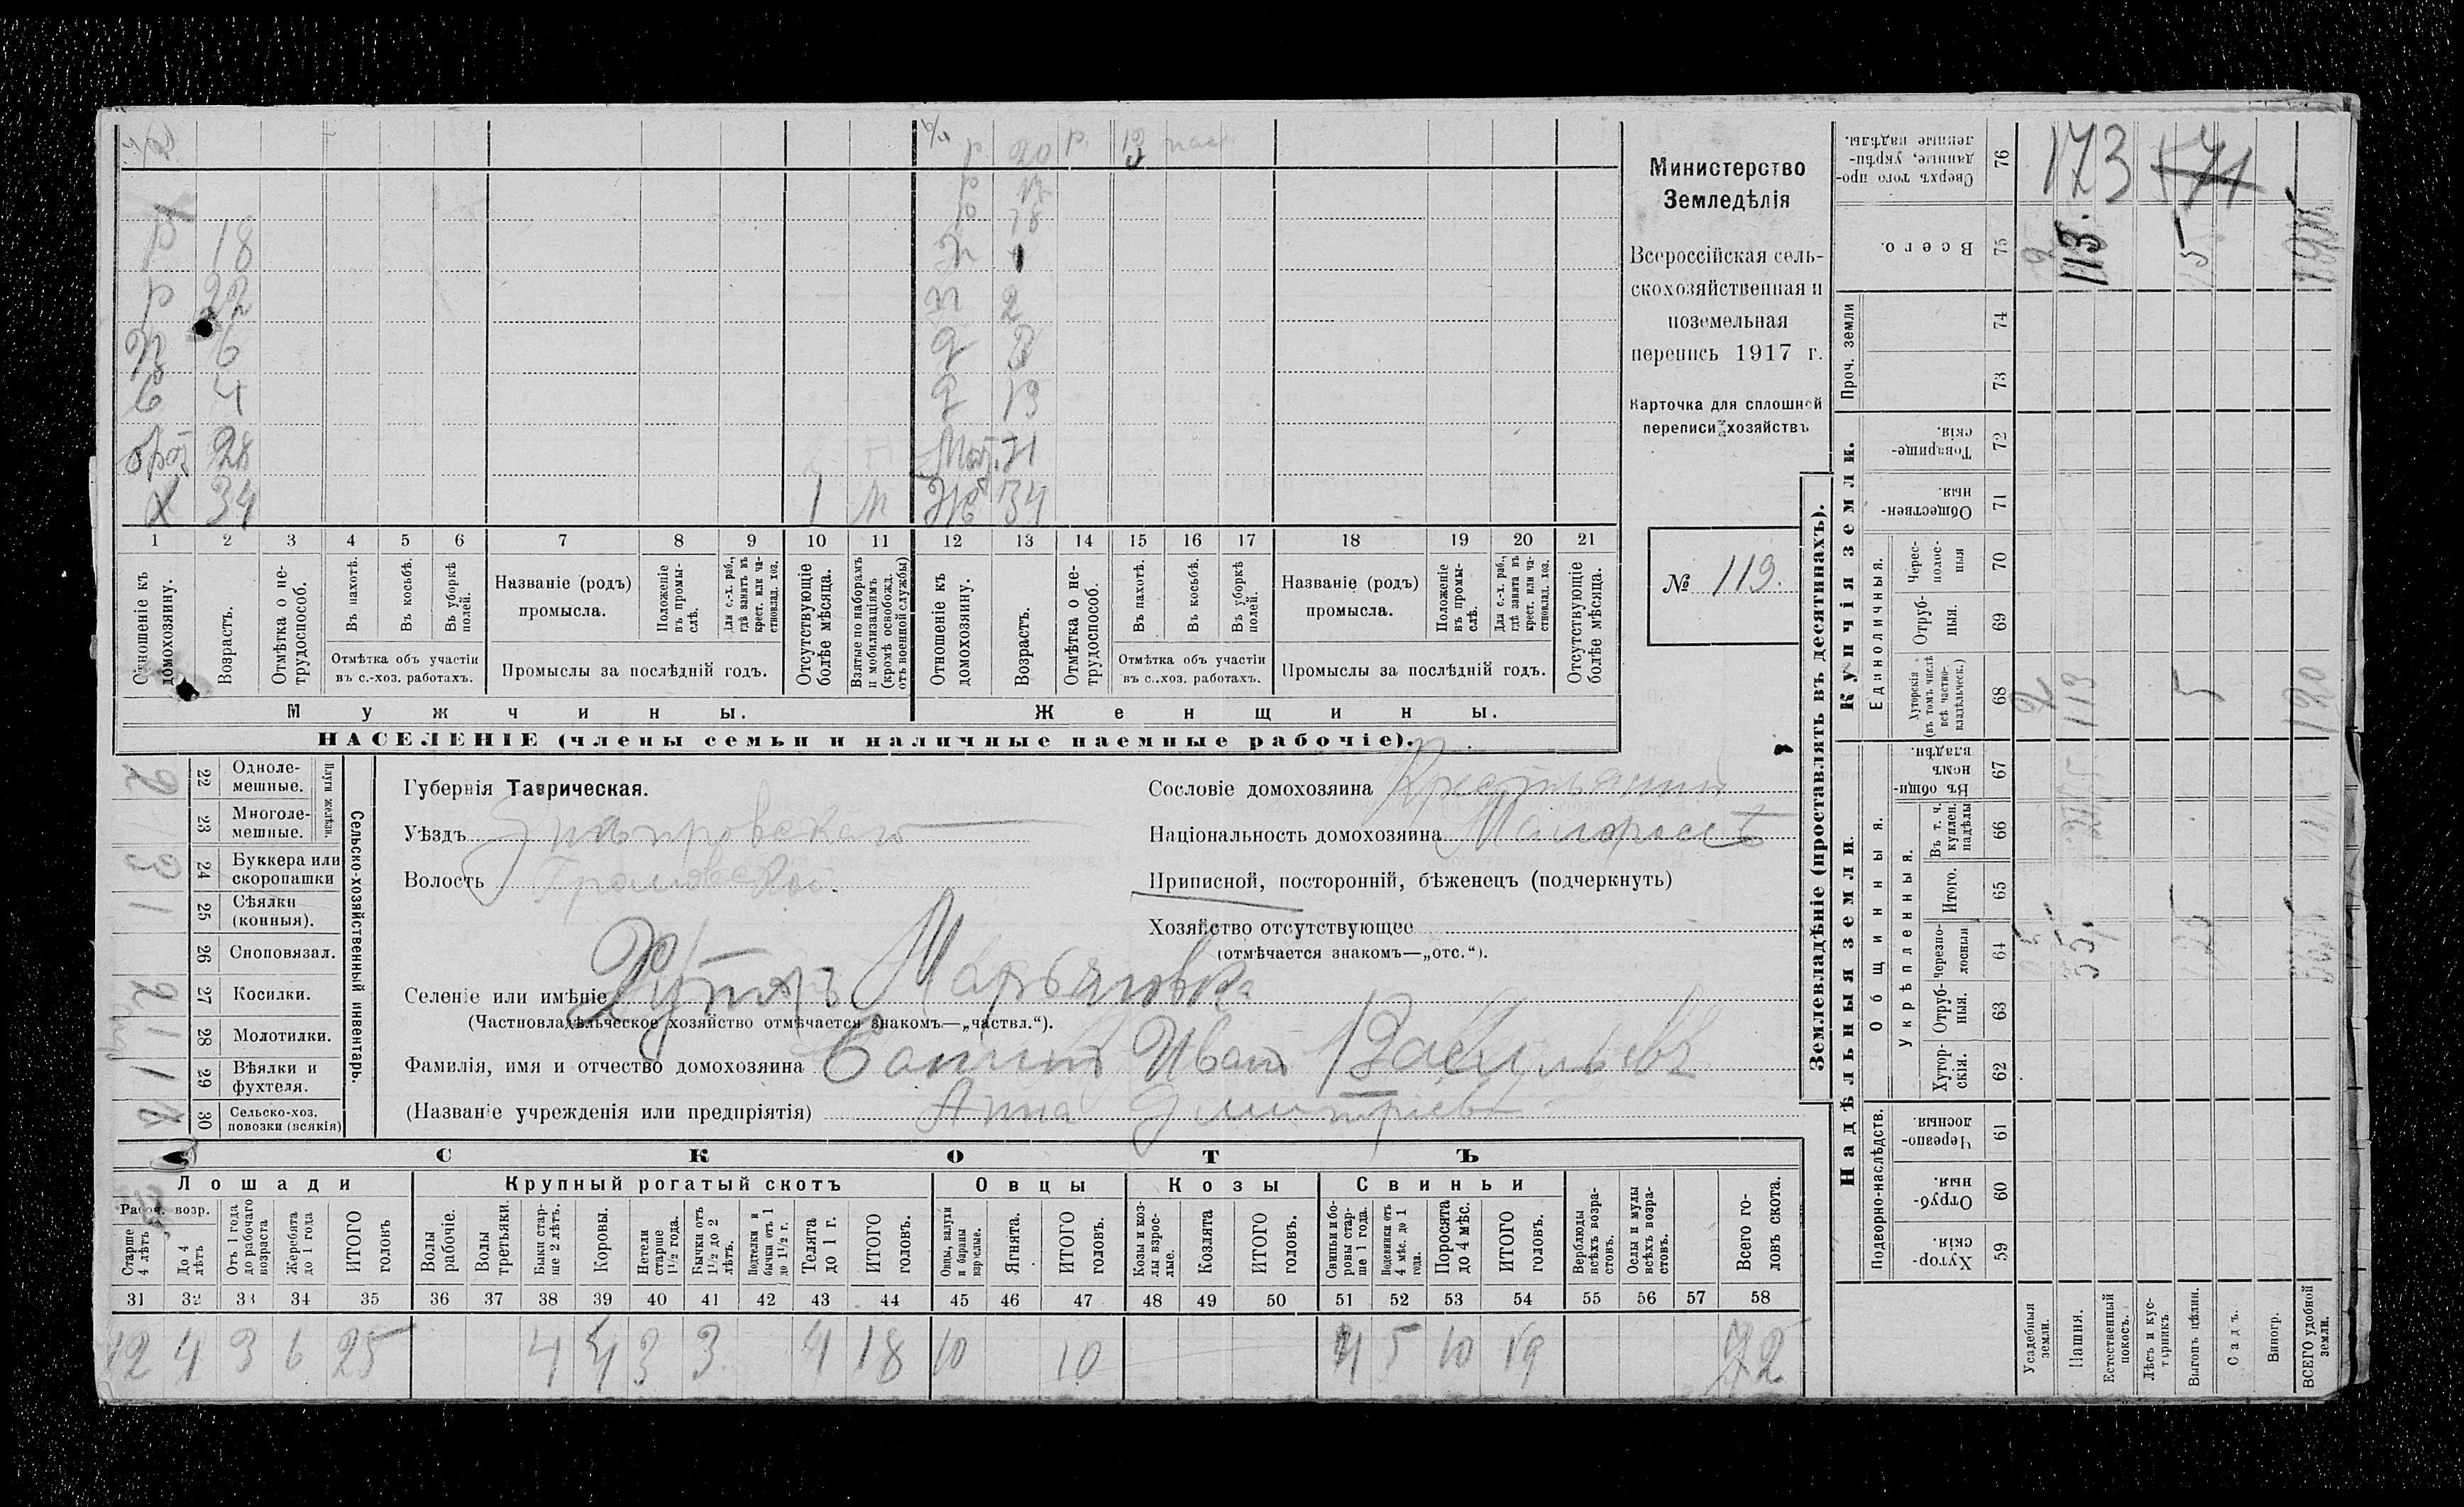 Министерство
Земледѣлія
Всероссійская сель-
скохозяйственная и
поземельная
перепись 1917 г.
Карточка для сплошной
переписи хозяйствъ
№ 119.
р 20 р. 13
р
р 18 р 18
р 22 п 2
п 6 д
с 4 д 13
брат 28 Мат. 71
х 34 1 м Же 34
1 2 3 4 5 6 7 8 9 10 11 12 13 14 15 16 17 18 19 20 21
Отношеніе къ домохозяину.
Возрастъ.
Отмѣтка о не-трудоспособ.
Въ пахотѣ.
Въ косьбѣ.
Въ уборкѣ полей.
Отмѣтка объ участіи въ с.-хоз. работахъ.
Названіе (родъ) промысла.
Положеніе въ промы-слѣ.
Для с.-х. раб., гдѣ занятъ въ крест. или ча-стновлад. хоз.
Промыслы за послѣдній годъ.
Отсутствующіе болѣе мѣсяца.
Взятые по наборамъ и мобилизаціямъ (кромѣ освобожд. отъ военной службы)
Отношеніе къ домохозяину.
Возрастъ.
Отмѣтка о не-трудоспособ.
Въ пахотѣ.
Въ косьбѣ.
Въ уборкѣ полей.
Отмѣтка объ участіи въ с..хоз. работахъ.
Названіе (родъ) промысла.
Положеніе въ промы-слѣ.
Для с.-х. раб., гдѣ занята въ крест. или ча-стновлад. хоз.
Промыслы за послѣдній годъ.
Отсутствующіе болѣе мѣсяца.
Мужчины. Женщины.
НАСЕЛЕНІЕ (члены семьи и наличные наемные рабочіе).
Сельско-хозяйственный инвентарь.
Плуги желѣзн.
22 Одноле-мешные. 2
23 Многоле-мешные.
24 Буккера или скоропашки 3
25 Сѣялки (конныя). 1
26 Сноповязал.
27 Косилки. 2
28 Молотилки. 1
29 Вѣялки и фухтеля. 1
30 Сельско-хоз. повозки (всякія)
Губернія Таврическая.
Уѣздъ Днѣпровскаго
Волость Громовской.
Селеніе или имѣніе Хуторъ Марьяновка
(Частновладѣльческое хозяйство отмѣчается знакомъ—„частвл.“).
Фамилія, имя и отчество домохозяина Иван Васильевъ
(Названіе учрежденія или предпріятія) Анна Дмитріев
Сословіе домохозяина Крестьянин
Національность домохозяина Малороссъ
Приписной, посторонній, бѣженецъ (подчеркнуть)
Хозяйство отсутствующее
(отмѣчается знакомъ—„отс.“).
СКОТЪ
Лошади Крупный рогатый скотъ Овцы Козы Свиньи
Рабоч. возр.
Старше 4 лѣтъ
До 4 лѣтъ
Отъ 1 года до рабочаго возраста
Жеребята до 1 года
ИТОГО головъ
Волы рабочіе.
Волы третьяки.
Быки стар-ше 2 лѣтъ.
Коровы.
Нетели старше 1½ года.
Бычки отъ 1½ до 2 лѣтъ.
Подтелки и бычки отъ 1 до 1½ г.
Телята до 1 г.
ИТОГО головъ.
Овцы, валухи и бараны взрослые.
Ягнята.
ИТОГО головъ.
Козы и коз-лы взрос-лые.
Козлята
ИТОГО головъ.
Свиньи и бо-ровы стар-ше 1 года.
Подсвинки отъ 4 мѣс. до 1 года.
Поросята до 4 мѣс.
ИТОГО головъ.
Верблюды всѣхъ возра-стовъ.
Ослы и мулы всѣхъ возра-стовъ.
Всего го-ловъ скота.
31 32 33 34 35 36 37 38 39 40 41 42 43 44 45 46 47 48 49 50 51 52 53 54 55 56 57 58
12 4 3 6 25 4 4 3 3 4 18 10 10 4 5 10 19 72
Землевладѣніе (проставлять въ десятинахъ).
Надѣльныя земли. Купчія земли.
Подворно-наслѣдств.
Общинныя.
Укрѣпленныя.
Единоличныя.
Проч. земли
Хутор-скія. 59
Отруб-ныя. 60
Черезпо-лосныя 61
Хутор-скія. 62
Отруб-ныя. 63
Черезпо-лосныя 64
Итого. 65
Въ т. ч. куплен. надѣлы 66
Въ общи-номъ владѣн. 67
Хуторскія (въ томъ числѣ всѣ частно-владѣльческ.) 68
Отруб-ныя. 69
Черес-полос-ныя 70
Обществен-ныя. 71
Товарище-скія. 72
73
74
Всего. 75
Сверхъ того про-данные, укрѣп-ленные надѣлы. 76
Усадебныя земли. 2 2
Пашня. 55. 113 113. 173
Естественный покосъ.
Лѣсъ и кус-тарникъ.
Выгонъ цѣлин. 5 5 571
Садъ.
Виногр.
ВСЕГО удобной земли. 120